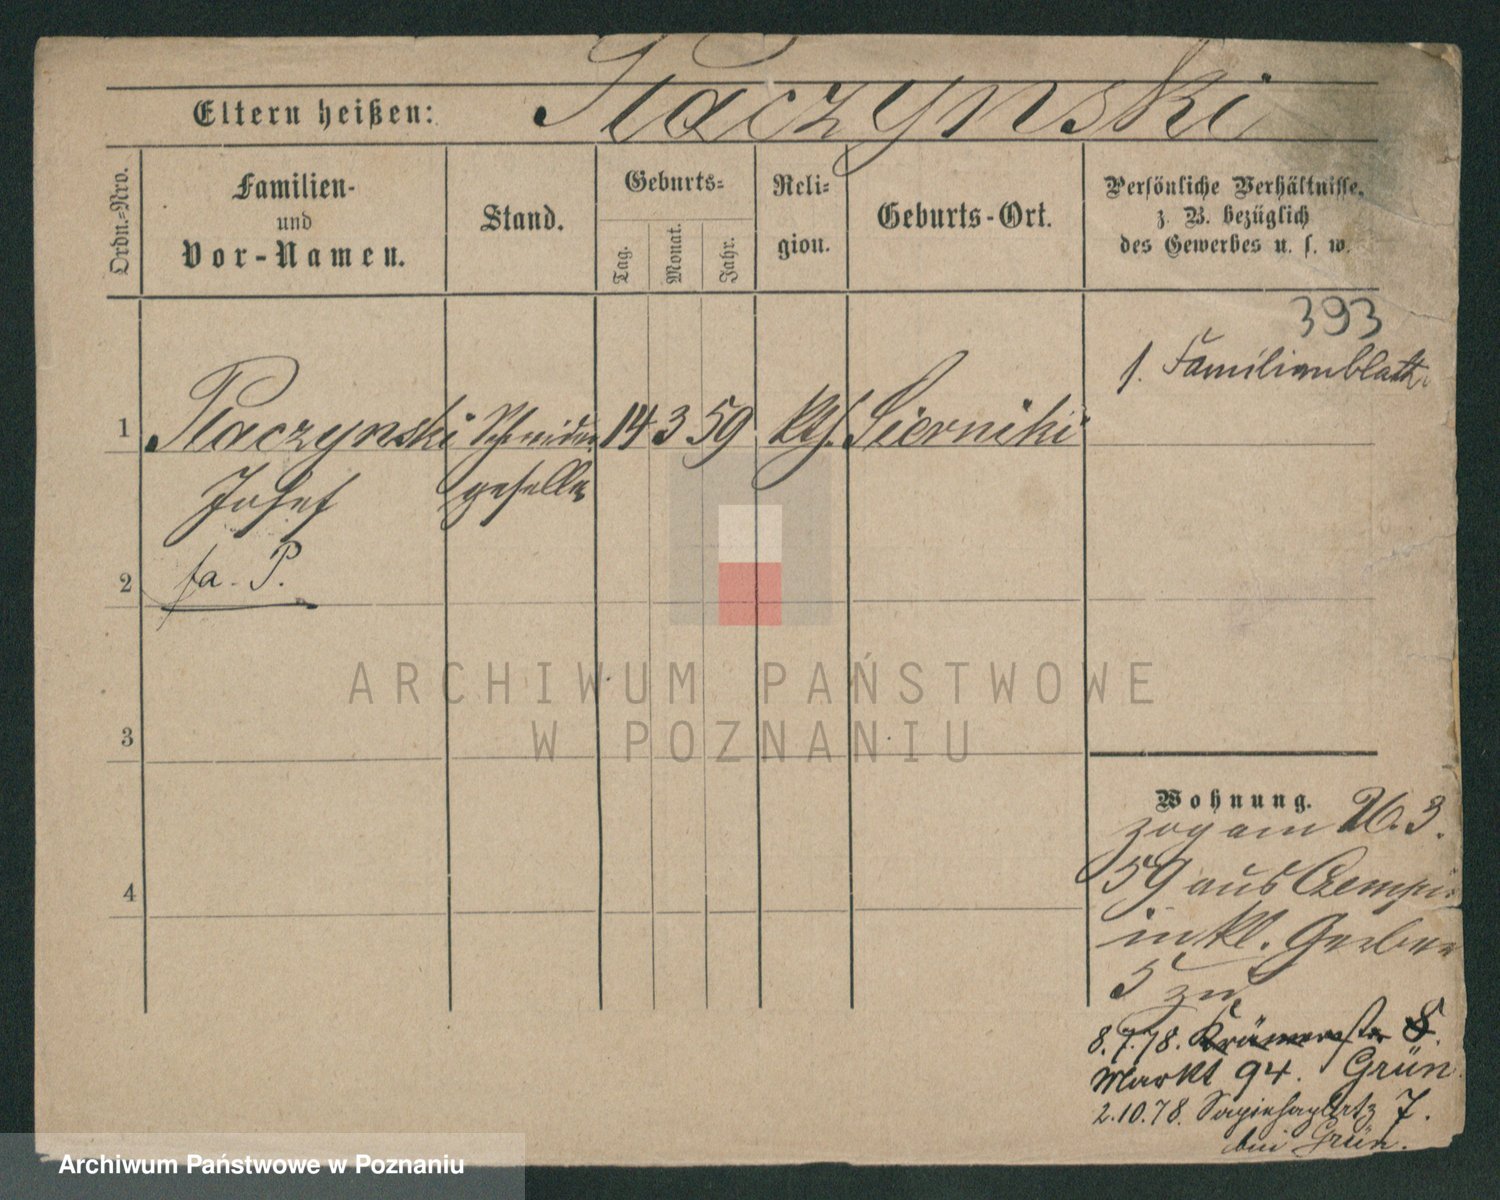 Eltern heißen: Placzynski
Ordn.=Nro.
Familien-
und
Vor-Namen.
Stand.
Geburts=
Tag.
Monat.
Jahr.
Reli=
gion.
Geburts-Ort.
Persönliche Verhältnisse,
z. B. bezüglich
des Gewerbes u. s. w.
393
1. Familienblatt
1 Placzynski Schneider 14 3 59 kth. Sierniki
Josef geselle
2 fa. P.
ARCHIWUM PAŃSTWOWE
W POZNANIU
3
4
Wohnung.
zog am 26. 3.
59 aus Czempin
in kl. Gerber
5 zu
8.7.78. Krämerstr 8.
Markt 94. Grün
2.10.78. Sapiehaplatz 7.
bei Grün.
Archiwum Państwowe w Poznaniu